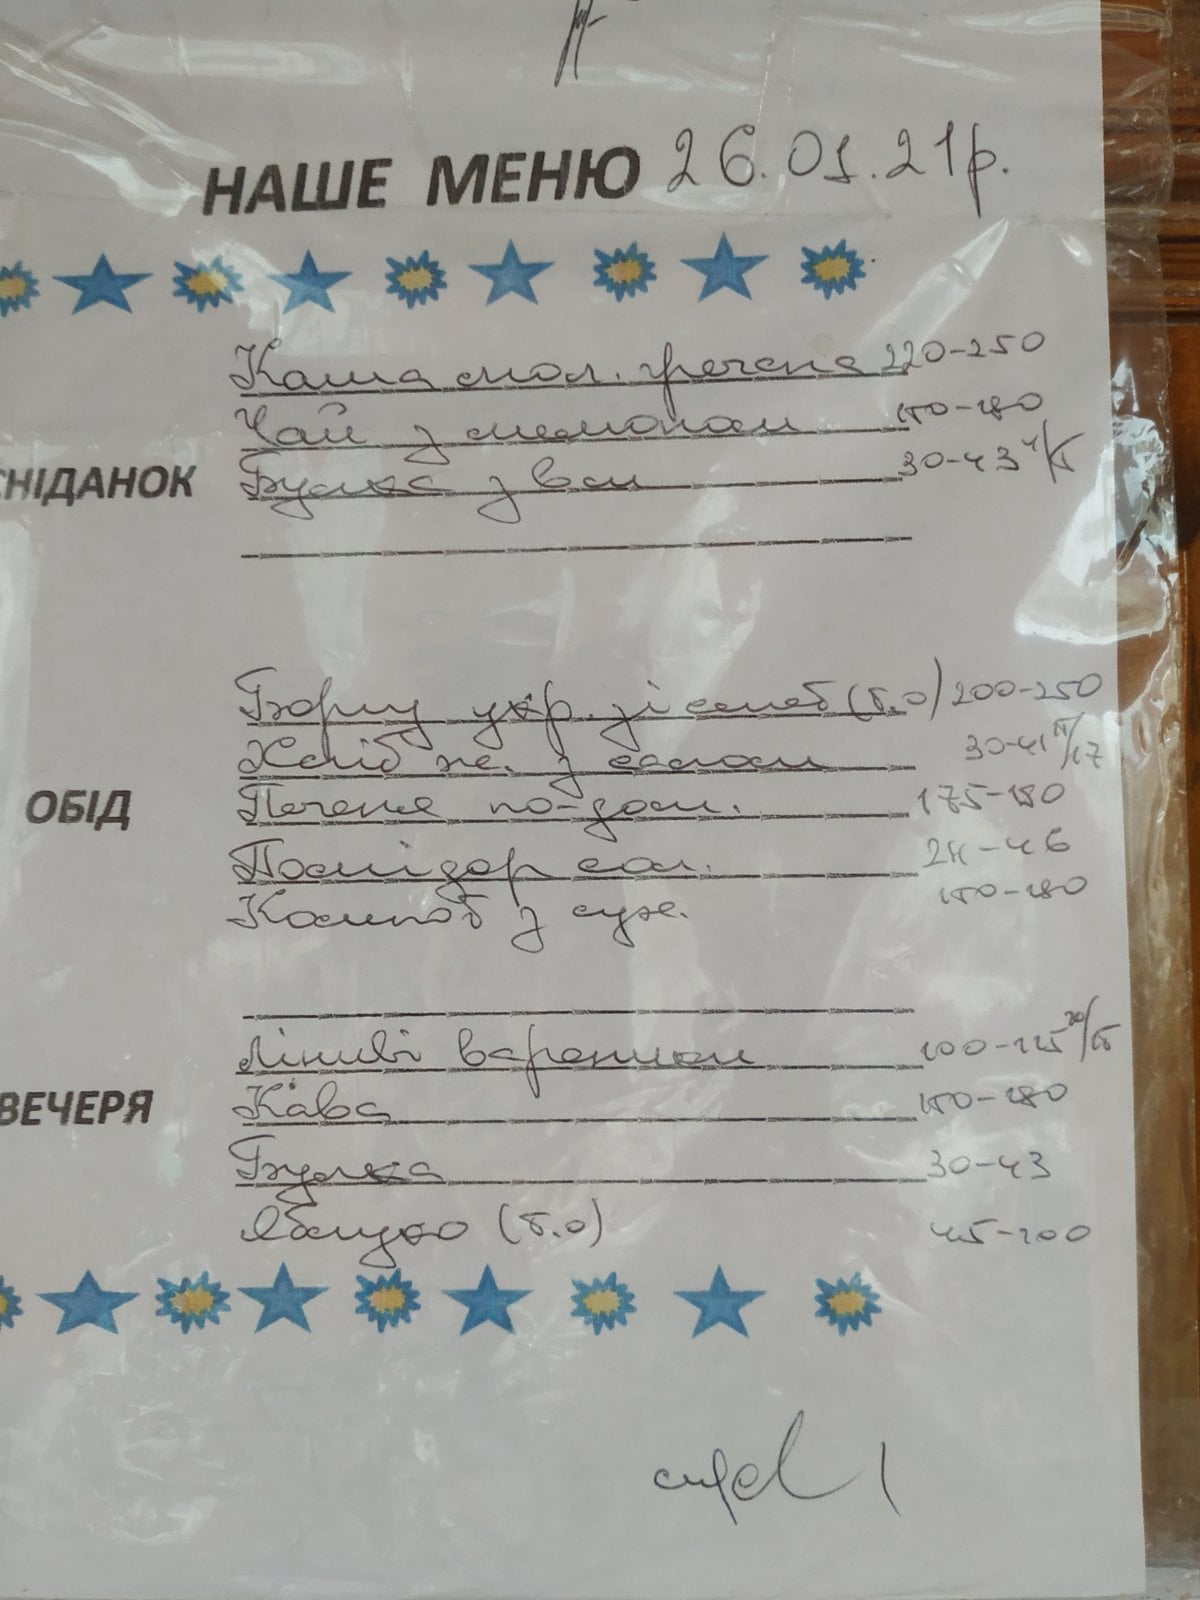 НАШЕ МЕНЮ 26.01.21р.
Каша мол. гречана 220-250
Чай з лимоном 150-180
СНІДАНОК
Булка з вам 30-43 4/5
Борщ укр. зі смет (б.о) 200-250
Хліб ж. з салом 30-41 15/17
ОБІД
Печеня по-дом. 175-180
Помідор сол. 24-46
Компот з сух. 150-180
Ліниві вареники 100-125 20/15
ВЕЧЕРЯ
Кава 150-180
Булка 30-43
Яблуко (б.о) 45-100